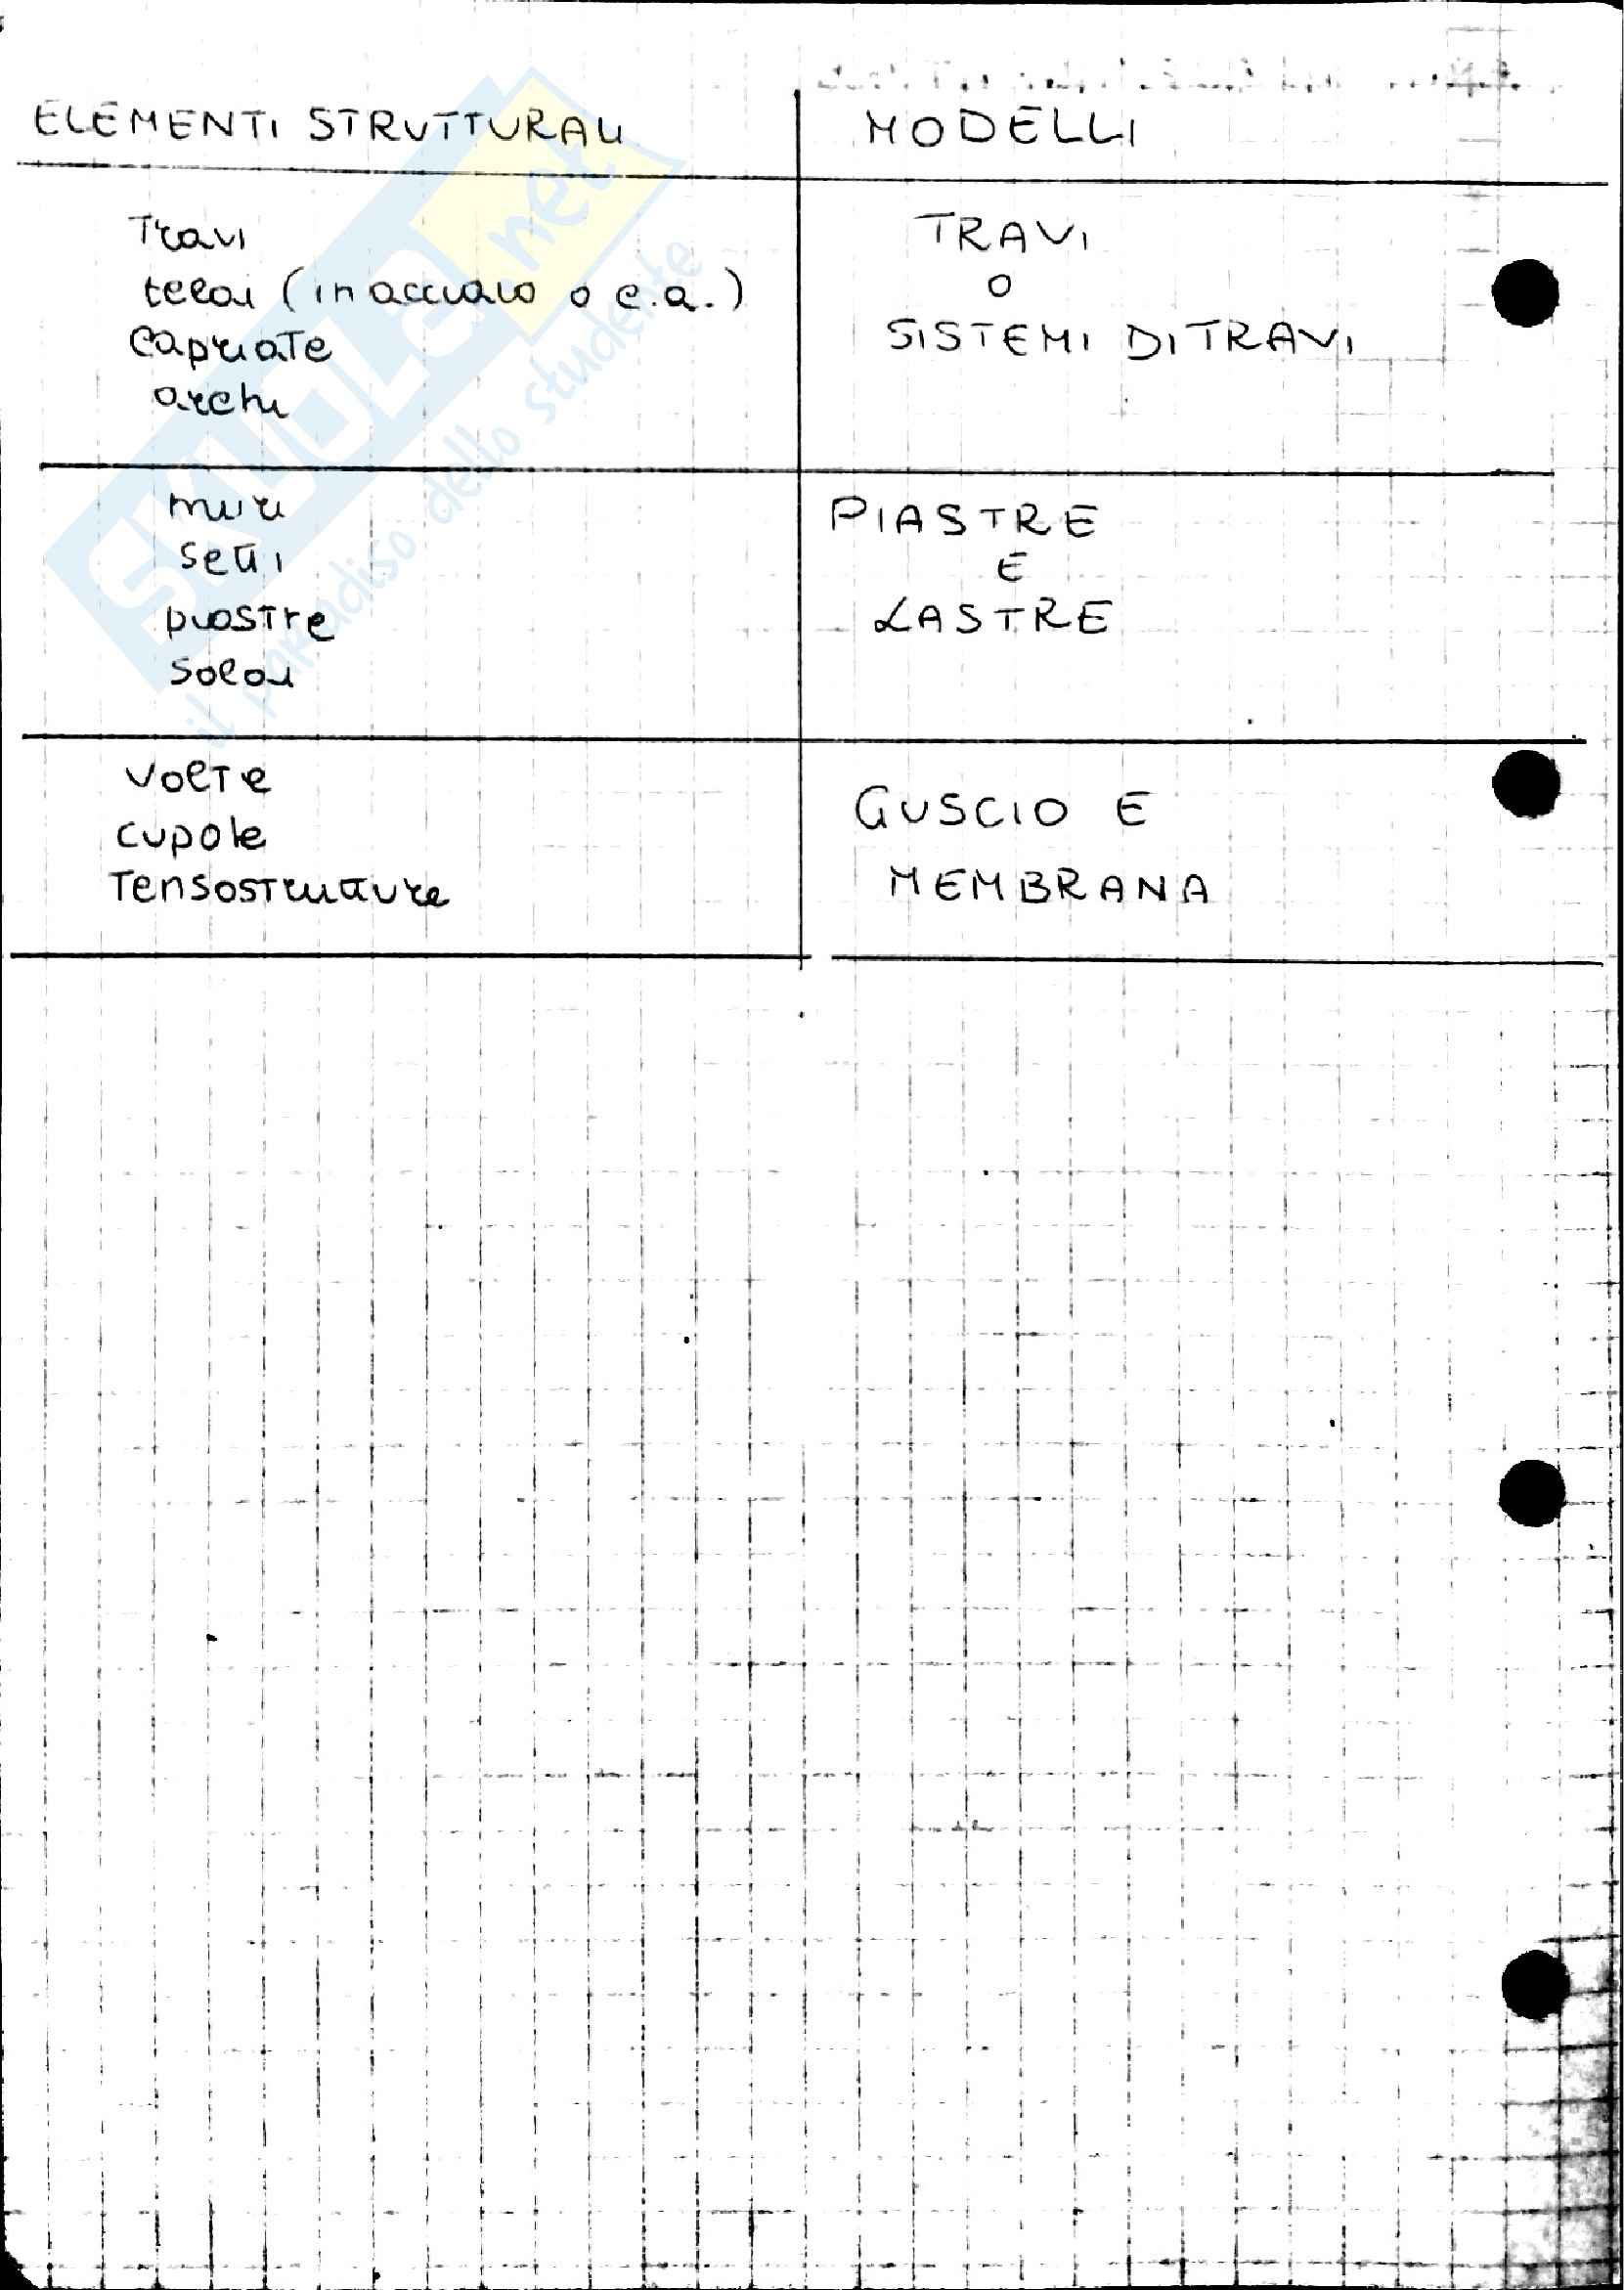 ELEMENTI STRUTTURALI
MODELLI
Travi
telai (in acciaio o c.a.)
Capriate
archi
TRAVI
O
SISTEMI DI TRAVI
muri
setti
piastre
Solai
PIASTRE
E
LASTRE
Volte
cupole
Tensostrutture
GUSCIO E
MEMBRANA
SKUOLA.net
il paradiso dello studente